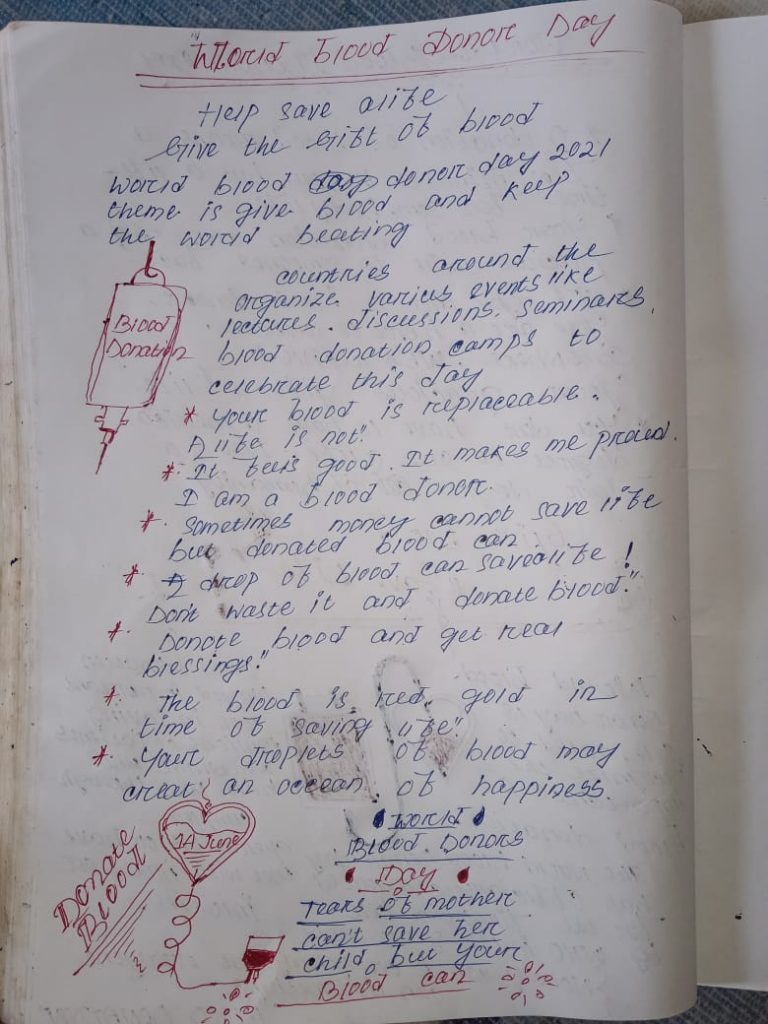 World Blood Donor Day
Help save a life
Give the Gift of blood
World blood donor day 2021
theme is give blood and keep
the world beating
Blood
Donation
countries around the
organize various events like
lectures. discussions. seminares,
blood donation camps to
celebrate this day
* Your blood is replaceable.
A life is not."
* It feels good. It makes me proud.
I am a blood donor.
* Sometimes money cannot save life
but donated blood can
* A drop of blood can save a life!
Don't waste it and donate blood."
* Donote blood and get real
blessings."
* The blood is red gold in
time of saving life."
* Your droplets of blood may
creat an occean of happiness.
14 June
Donate
Blood
World
Blood Donors
Day
Tears of mother
can't save her
child, but your
Blood can